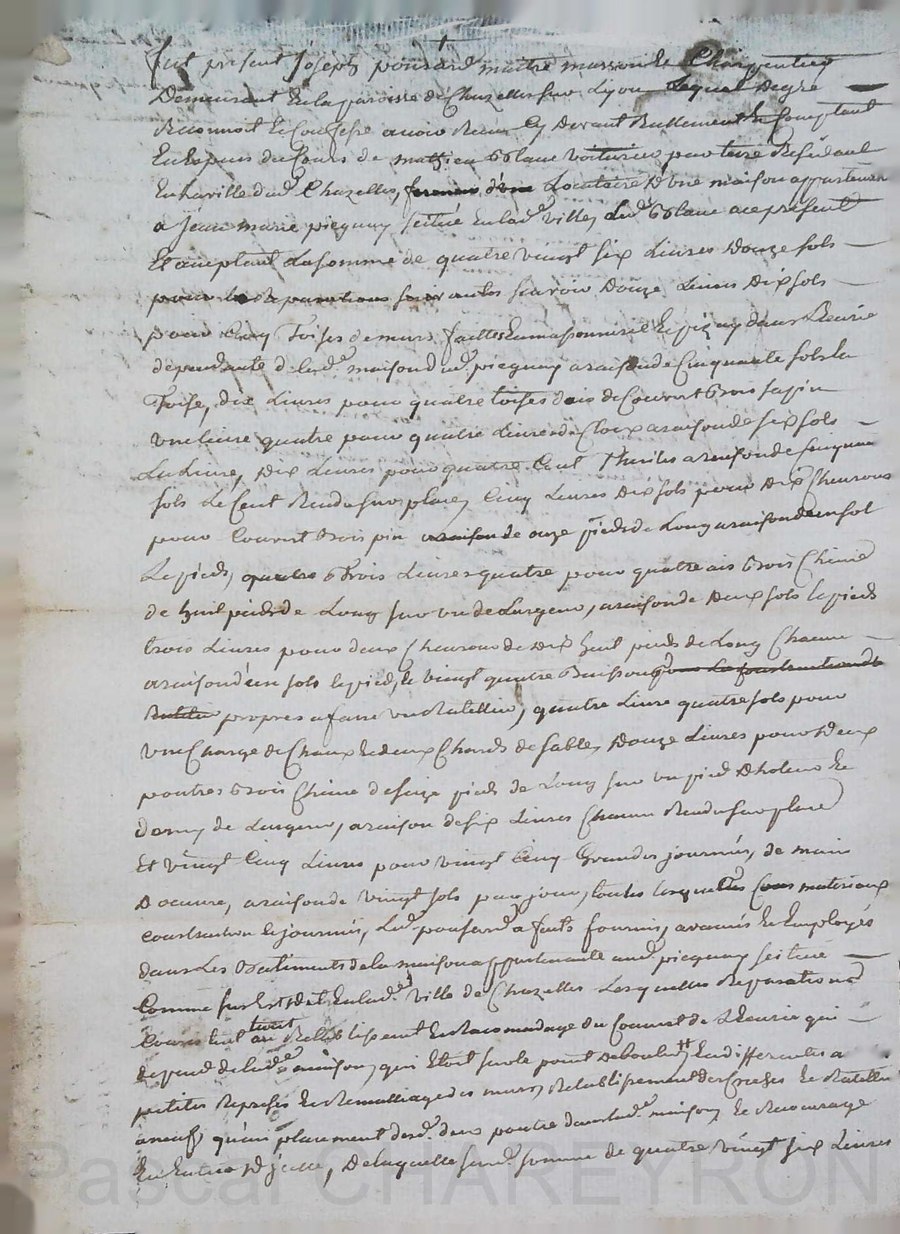 fut présent Joseph ponsard maitre masson et Charpentier
Demeurant En la paroisse de Chazelles sur Lyon Lequel De gré
Reconnoit et Confesse avoir Receu Cy Devant Reellement et Comptant
En Especes du Cours de mathieu blanc voiturier par terre Residant
En la ville dud. Chazelles, Locataire D'une maison appartenant
a Jean marie picquay scituée En lad. ville, led. blanc ace present
Et aceptant La somme de quatre vingt six Livres Douze sols
pour les Reparations suivantes scavoir Douze Livres Dix sols
pour Cinq Toises de murs faittes En massonnerie Et dans L'ecurie
dependante de lad. maison dud. picquay a raison de Cinquante sols la
Toise, dix Livres pour quatre toises d'ais de Couvert bois sapin
une livre quatre pour quatre Livres de Cloux a raison de six sols
La Livre, Dix Livres pour quatre Cent Thuiles a raison de Cinquante
sols Le Cent Rendu sur place, Cinq Livres Dix sols pour Dix Chevrons
pour Couvert bois pin de onze pieds de Long a raison d'un sol
Le pied, trois Livres quatre pour quatre ais bois Chêne
de huit pieds de Long sur un de Largeur, a raison de Deux sols le pied
trois Livres pour deux Chevrons de Dix huit pieds de Long Chacun
a raison d'un sols le pied, et vingt quatre
propres a faire un Ratellier, quatre Livre quatre sols pour
une Charge de Chaux et deux Chards de sable, Douze Livres pour Deux
poutres bois Chêne de seize pieds de Long sur un pied D'hoteur et
demy de Largeur, a raison de six Livres Chacun Rendu sur place
Et vingt Cinq Livres pour vingt Cinq Grandes journées, de main
D'oeuvre, a raison de vingt sols par jour, toutes lesquelles materiaux
construction et journées, Led. ponsard a faits fournir, avancés et Employés
dans Les Batiments de la maison appartenante aud. picquay scituée
Comme sus Est Dit En lad. ville de Chazelles Lesquelles Reparations
Consistent tant au Rétablissement et Racomodage du Couvert de L'Ecurie qui
depend de lad. maison, qui Etoit sur le point D'ebouler, En differentes
petites Reprises et des murs, Retablissement des Creches et Ratellier
a neuf qu'au placement desd. deux poutre dans lad. maison, et
En Entier D'jcelle, De laquelle susd. somme de quatre vingt six Livres
Pascal CHAREYRON